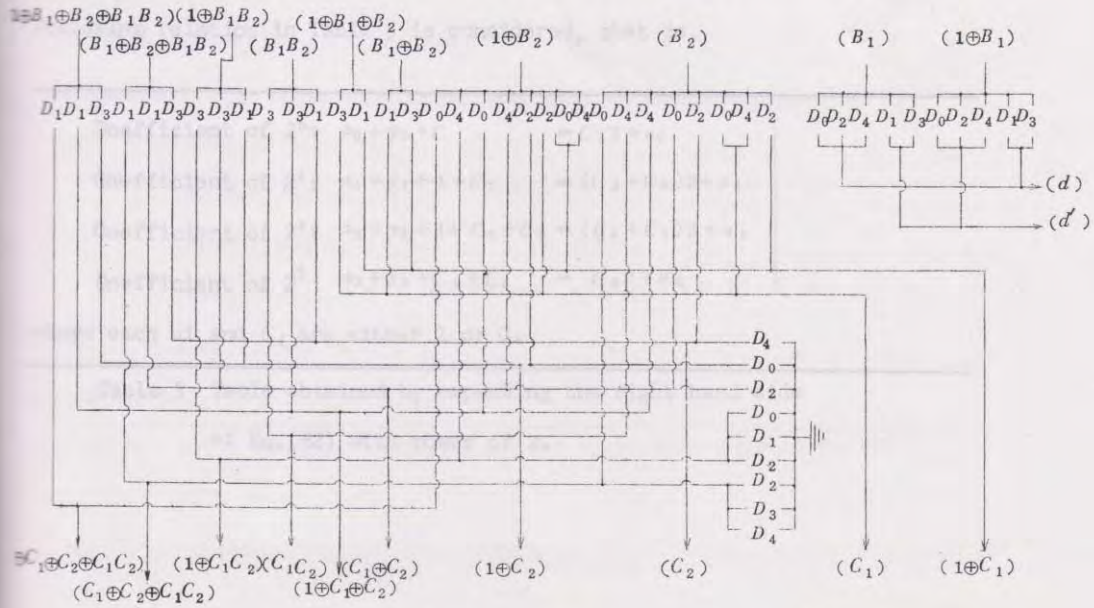 1⊕B₁⊕B₂⊕B₁B₂) (1⊕B₁B₂) (1⊕B₁⊕B₂) (1⊕B₂) (B₂) (B₁) (1⊕B₁)
(B₁⊕B₂⊕B₁B₂) (B₁B₂) (B₁⊕B₂)
D₁ D₁ D₃ D₁ D₁ D₃ D₃ D₃ D₁ D₃ D₃ D₁ D₃ D₁ D₃ D₀ D₄ D₀ D₄ D₂ D₂ D₀ D₄ D₀ D₄ D₄ D₀ D₂ D₀ D₄ D₂
D₀ D₂ D₄ D₁ D₃ D₀ D₂ D₄ D₁ D₃
(d)
(d′)
D₄
D₀
D₂
D₀
D₁
D₂
D₂
D₃
D₄
⊕C₁⊕C₂⊕C₁C₂) (1⊕C₁C₂) (C₁C₂) (C₁⊕C₂) (1⊕C₂) (C₂) (C₁) (1⊕C₁)
(C₁⊕C₂⊕C₁C₂) (1⊕C₁⊕C₂)